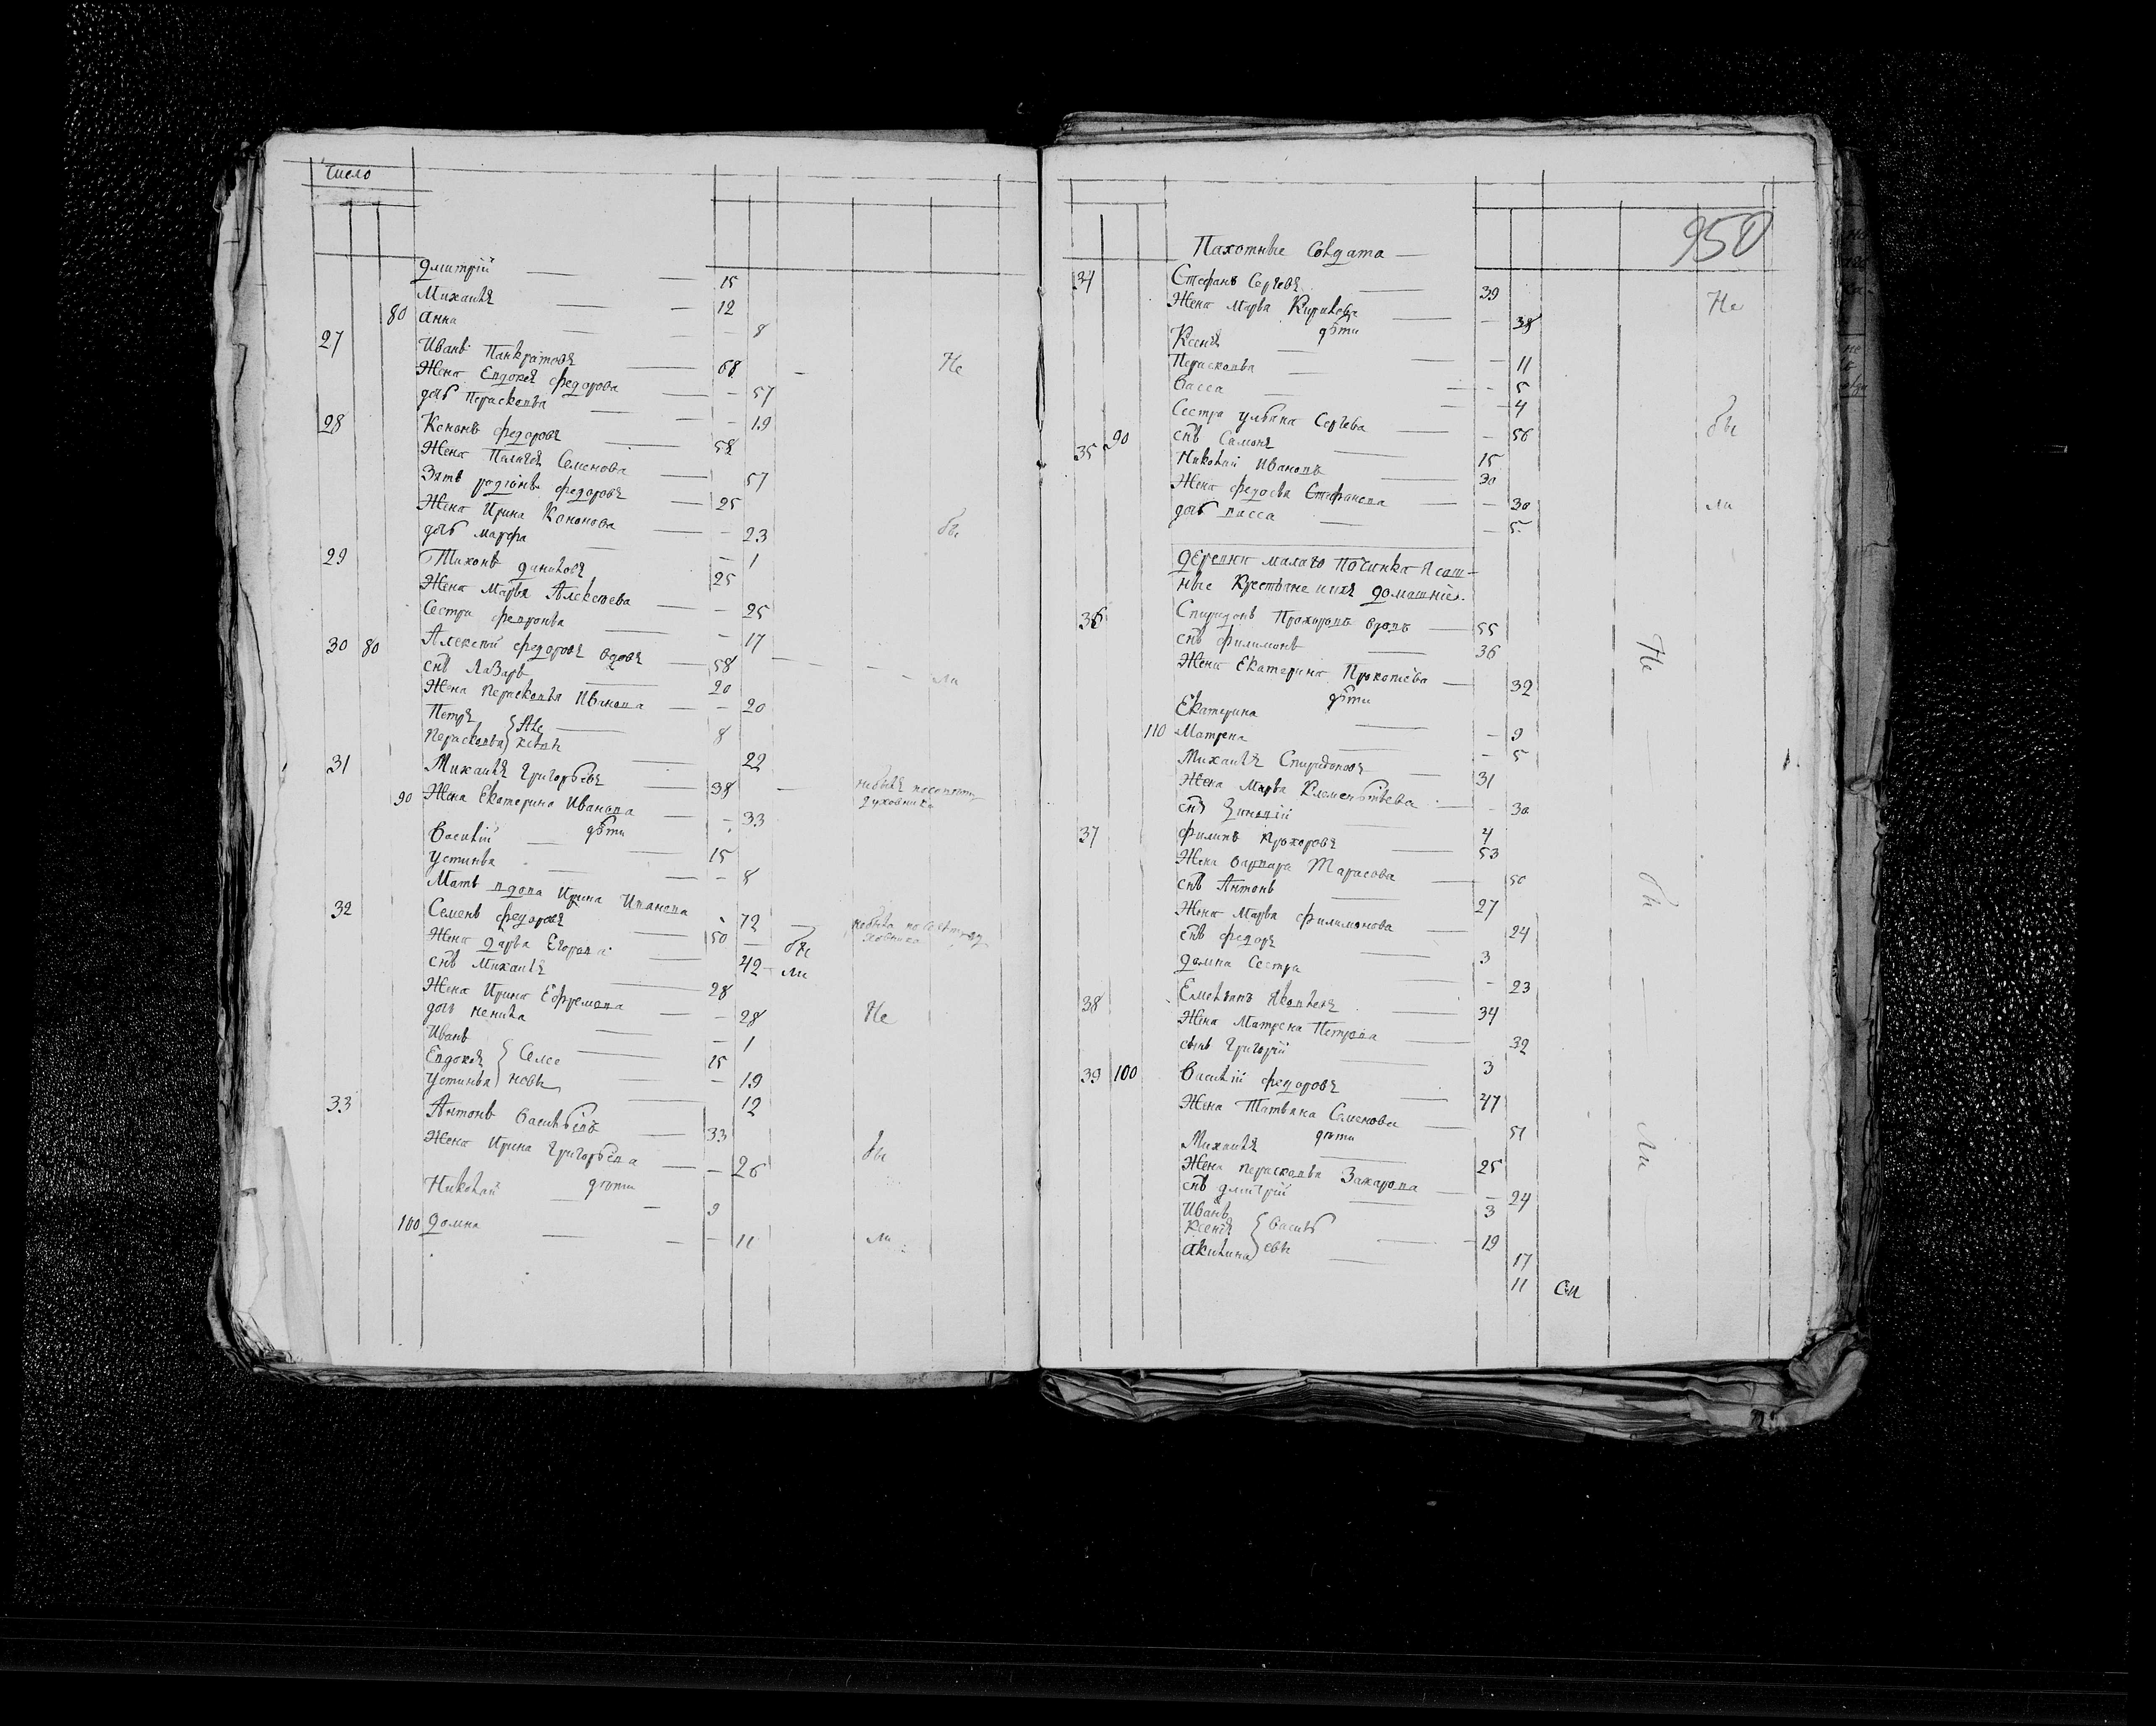 Число
Дмитрій — — 15
Михаилъ — — 12
80 Анна — — 8
27 Иванъ Панкратовъ — 68 — Не
Жена Евдокея Федорова — 57
дочь Перасковья — — 19
28 Кононъ Федоровъ — 58
Жена Пелагея Семенова — 57
Зять Родіонъ Федоровъ — 25
Жена Ирина Кононова — 23 бы
дочь Марфа — — 1
29 Тихонъ Даниловъ — 25
Жена Марья Алексеева — — 25
Сестра Февронья — — 17
30 80 Алексей Федоровъ вдовъ — 58 — — — ли
снъ Лазарь — 20
Жена Перасковья Иванова — — 20
Петръ — 8
Перасковья Але
ксевы — 22
31 Михаилъ Григорьевъ — 38 —
90 Жена Екатерина Иванова — — 33
дѣти
Василій — — 15
Устинья — — 8
Мать вдова Ирина Иванова 72 —
32 Семенъ Федоровъ — 50 — бы
Жена Дарья Егорова — 42 — ли
снъ Михаилъ — 28
Жена Ирина Ефремова — — 28 Не
дочь Ненила — — 1
Иванъ — 15
Евдокея Семе — — 19
Устинья новы — 12
33 Антонъ Васильевъ — 33
Жена Ирина Григорьева — — 26 бы
дѣти
Николай — — 9
100 Домна — — — 11 ли
950
Пахотные Солдата —
34 Стефанъ Сергевъ — 39 Не
Жена Марья Кирилева — — 38
дѣти
Ксенья — — — 11
Перасковья — — 5
Васса — — 4
Сестра Ульяна Сергева — — 56 бы
снъ Самонъ — 15
35 90 Николай Ивановъ — 30
Жена Федосья Стефанова — — 30 ли
дочь Васса — — 5
Деревни малаго Починка Ясаш-
ные Крестьяне ихъ домашніе.
36 Спиридонъ Прохоровъ вдовъ — 55
снъ Филимонъ — 36 Не
Жена Екатерина Прокопіева — 32
дѣти
Екатерина — — 9
110 Матрена — — 5
Михаилъ Спиридоновъ — 31
Жена Марья Клементьева — — 30
снъ Зиновій — 4
37 Филипъ Прохоровъ — 53
Жена Варвара Тарасова — 50 бы
снъ Антонъ — 27
Жена Марья Филимонова — 24
снъ Федоръ — 3
Домна Сестра — — 23
38 Емельянъ Яковлевъ — 34
Жена Матрена Петрова — 32
сынъ Григорій — 3
39 100 Василій Федоровъ — 47
Жена Татьяна Семенова — 51
дѣти
Михаилъ — 25 ли
Жена Перасковья Захарова — — 24
снъ Дмитрій — 3
Иванъ — 19
Ксенья Василь — 17
Акилина евы — 11